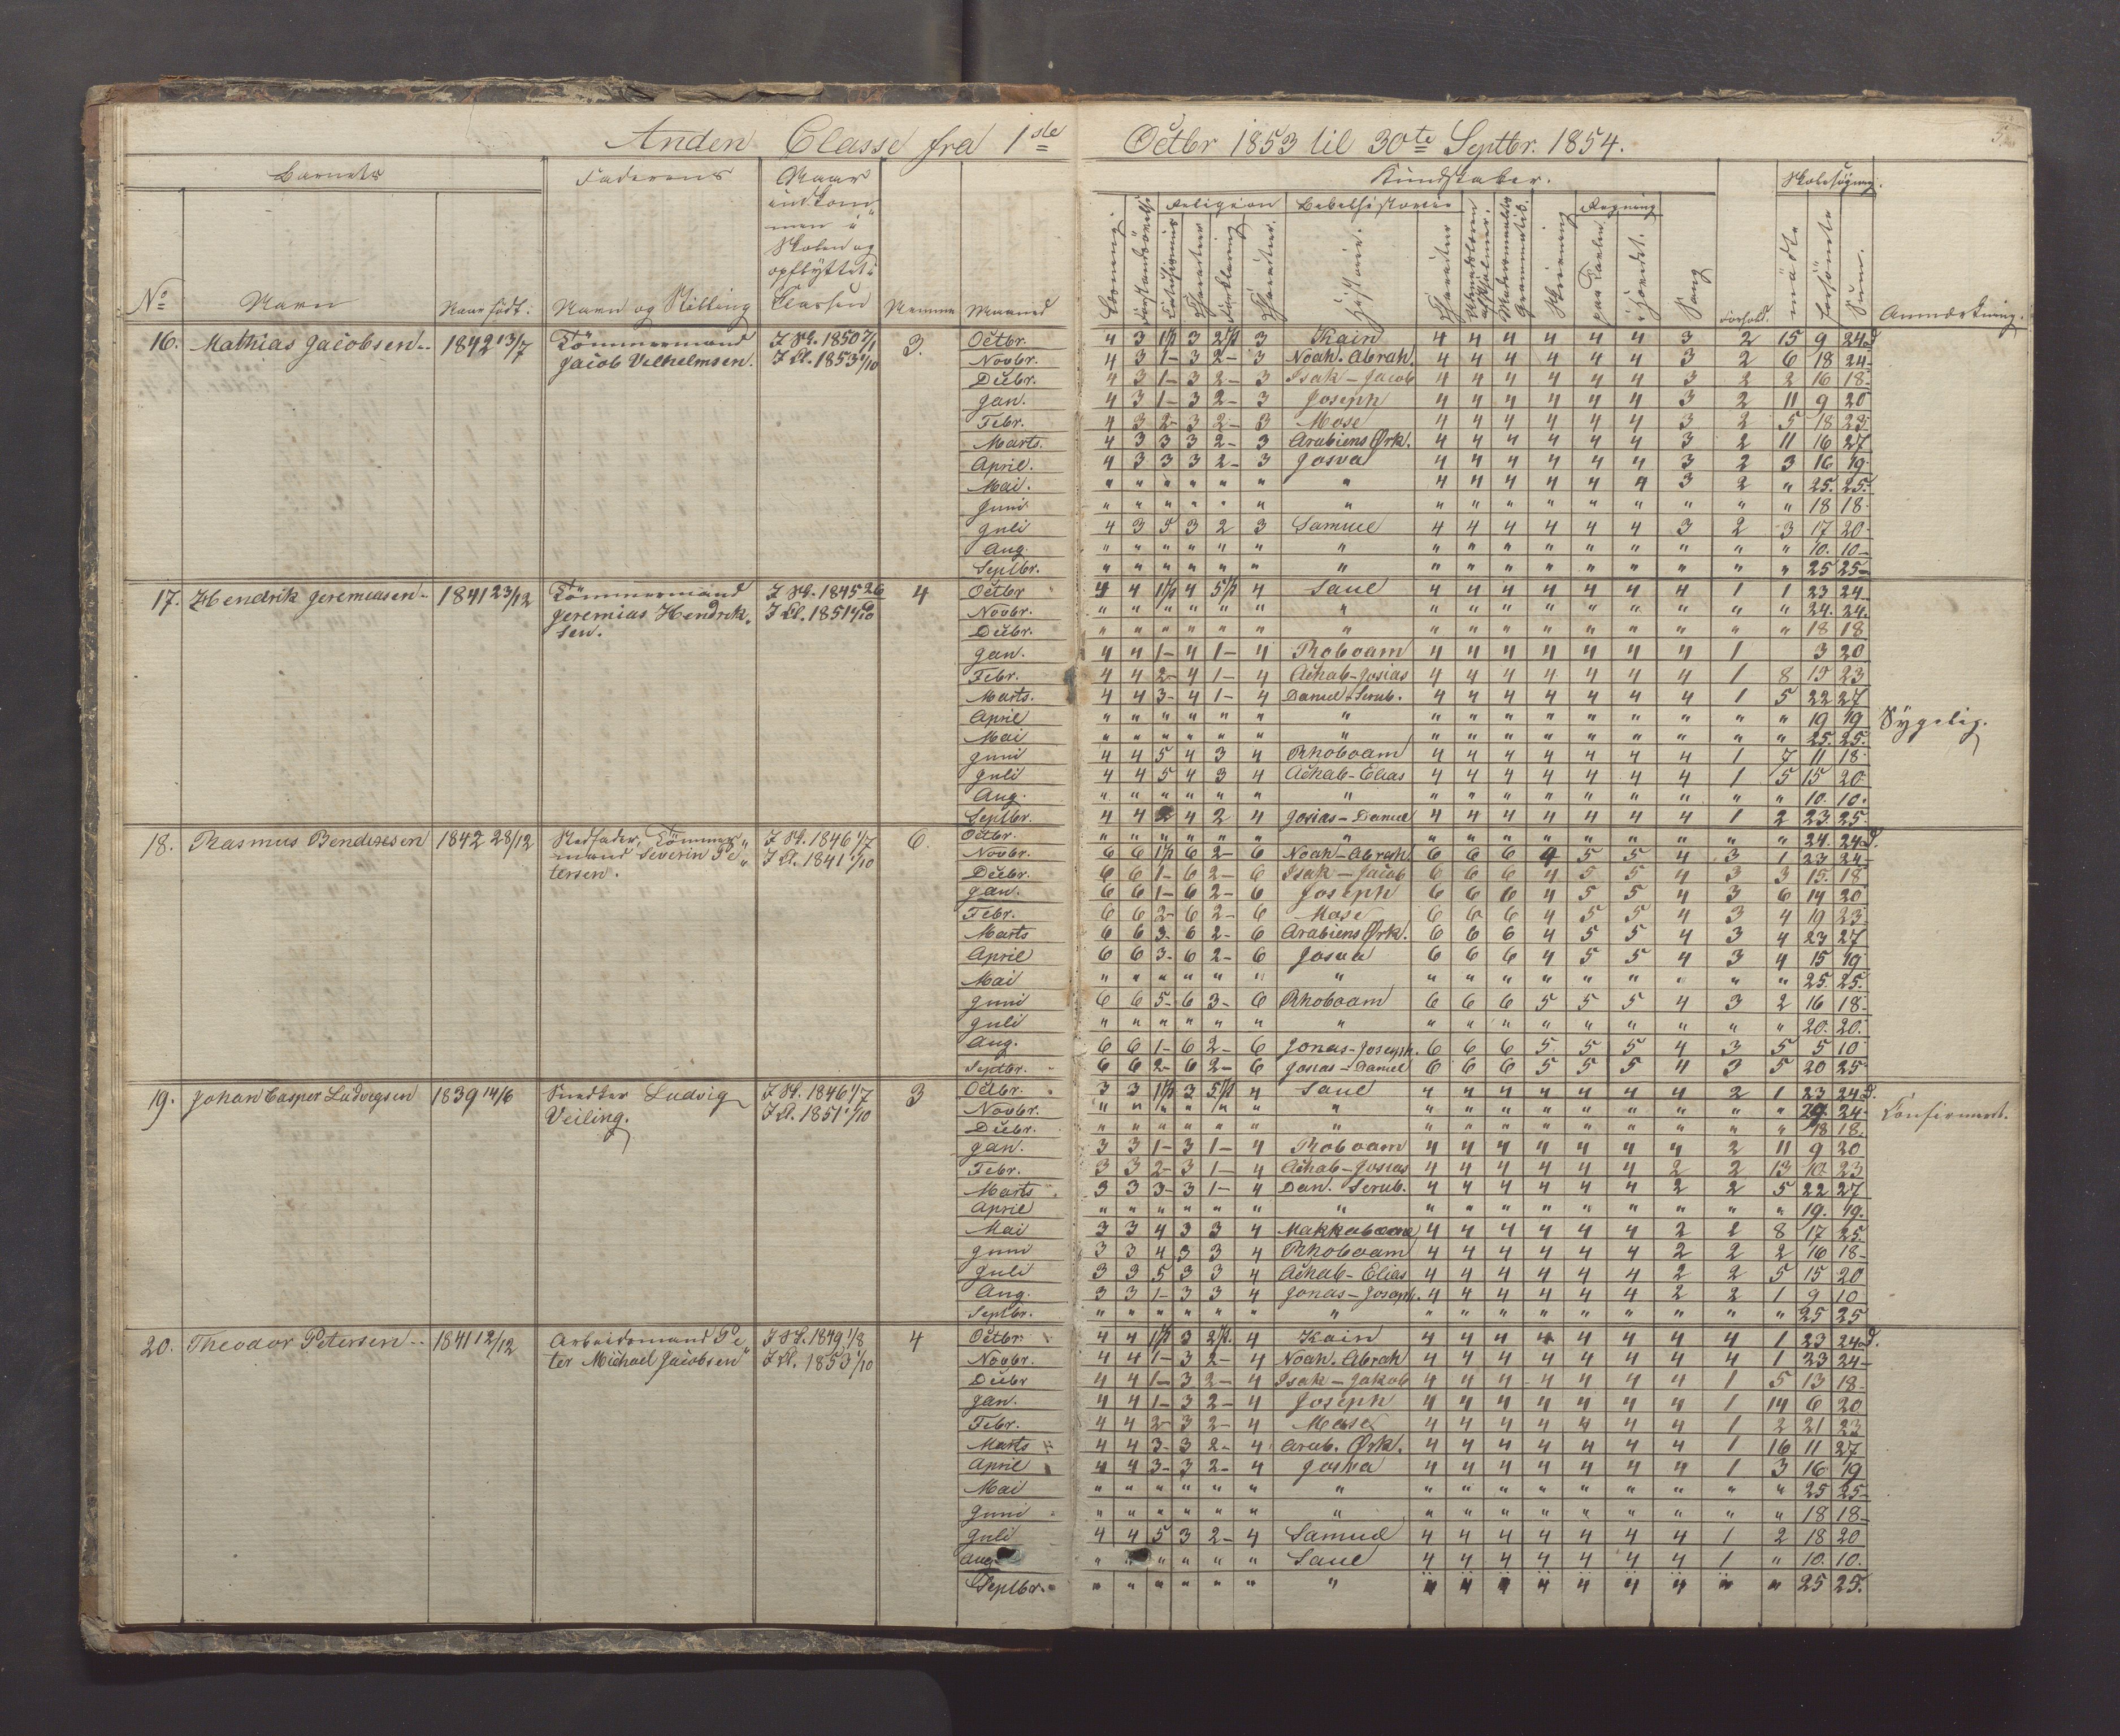 Anden Classe fra 1ste Octbr 1853 til 30te Septbr. 1854.
Barnets Faderens Naar indkommen i Skolen og opflyttet i Classen Nummer Maaned Kundskaber. Forhold. Skolesøgning. Anmærkning.
No Navn Naar født. Navn og Stilling
Religion Bibelhistorie Regning
Læsning. Forklaring Historie. Skrivning paa Tavlen i Hovedet. Sang mødte forsömte Sum.
16. Mathias Jacobsen 1842 13/7 Tömmermand J Sk. 1850 7/1 3. Octbr. 4 3 1ste P 3 2d P 3 Kain 4 4 4 4 4 4 3 2 15 9 24 D
Jacob Velhelmsen. J Cl. 1853 1/10 Novbr. 4 3 1 - 3 2 - 3 Noah. Abrah. 4 4 4 4 4 4 3 2 6 18 24-
Decbr. 4 3 1 - 3 2 - 3 Isak - Jacob 4 4 4 4 4 4 3 2 2 16 18-
Jan. 4 3 1 - 3 2 - 3 Joseph 4 4 4 4 4 4 3 2 11 9 20
Febr. 4 3 2 - 3 2 - 3 Mose 4 4 4 4 4 4 3 2 5 18 23-
Marts. 4 3 3 3 2 - 3 Arabiens Ørk. 4 4 4 4 4 4 3 2 11 16 27
April. 4 3 3 3 2 - 3 Josva 4 4 4 4 4 4 3 2 3 16 19-
Mai. " " " " " " " 4 4 4 4 4 4 3 2 " 25. 25.
Juni " " " " " " " " " " " " " " " " 18 18-
Juli 4 3 5 3 2 3 Samuel 4 4 4 4 4 4 3 2 3 17 20-
Aug. " " " " " " " " " " " " " " " " 10. 10-
Septbr. " " " " " " " " " " " " " " " " 25 25-
17. Hendrik Jeremiasen 1841 23/12 Tömmermand J Sk. 1845 26 4 Octbr 4 4 1 P 4 5 P 4 Saul 4 4 4 4 4 4 4 1 1 23 24
Jeremias Hendrik J Cl. 1851 1/10 Novbr. " " " " " " " " " " " " " " " " 24. 24.
sen. Decbr. " " " " " " " " " " " " " " " " 18 18
Jan. 4 4 1 - 4 1 - 4 Roboam 4 4 4 4 4 4 4 1 3 20
Febr. 4 4 2 - 4 1 - 4 Achab - Josias 4 4 4 4 4 4 4 1 8 15 23
Marts. 4 4 3 - 4 1 - 4 Daniel - Serub. 4 4 4 4 4 4 4 1 5 22 27
April " " " " " " " " " " " " " " " " 19 19 Sygelig.
Mai " " " " " " " " " " " " " " " " 25. 25.
Juni 4 4 5 4 3 4 Rhoboam 4 4 4 4 4 4 4 1 7 11 18-
Juli 4 4 5 4 3 4 Achab - Elias 4 4 4 4 4 4 4 1 5 15 20
Aug. " " " " " " " " " " " " " " " " 10. 10.
Septbr. 4 4 2 4 2 4 Josias - Daniel 4 4 4 4 4 4 4 1 2 23 25.
18. Rasmus Bendixsen 1842 28/12 Stedfader, Tömmer J Sk. 1846 1/7 6. Octbr. " " " " " " " " " " " " " " " " 24. 24 D.
mand Severin Pe J Cl. 1841 1/10 Novbr. 6 6 1 P 6 2 - 6 Noah - Abrah. 6 6 6 4 5 5 4 3 1 23 24-
tersen. Decbr. 6 6 1 - 6 2 - 6 Isak - Jacob 6 6 6 4 5 5 4 3 3 15. 18
Jan. 6 6 1 - 6 2 - 6 Joseph 6 6 6 4 5 5 4 3 6 14 20
Febr. 6 6 2 - 6 2 - 6 Mose 6 6 6 4 5 5 4 3 4 19 23-
Marts 6 6 3 - 6 2 - 6 Arabiens Ørk. 6 6 6 4 5 5 4 3 4 23 27
April 6 6 3 - 6 2 - 6 Josva 6 6 6 4 5 5 4 3 4 15 19
Mai " " " " " " " " " " " " " " " " 25. 25.
Juni 6 6 5 - 6 3 - 6 Rhoboam 6 6 6 5 5 5 4 3 2 16 18-
Juli " " " " " " " " " " " " " " " " 20. 20.
Aug. 6 6 1 - 6 2 - 6 Jonas - Joseph. 6 6 6 5 5 5 4 3 5 5 10
Septbr. 6 6 2 - 6 2 - 6 Josias - Daniel 6 6 6 5 5 5 4 3 5 20 25
19. Johan Casper Ludvigsen 1839 14/6 Snedker Ludvig J Sk. 1846 1/7 3 Octbr. 3 3 1 P 3 5 P 4 Saul 4 4 4 4 4 4 4 2 1 23 24 D.
Veiling. J Cl. 1851 1/10 Novbr. " " " " " " " " " " " " " " " " 24. 24- Confirmeret.
Decbr. " " " " " " " " " " " " " " " " 18 18.
Jan. 3 3 1 - 3 1 - 4 Roboam 4 4 4 4 4 4 4 2 11 9 20
Febr. 3 3 2 - 3 1 - 4 Achab - Josias 4 4 4 4 4 4 2 2 13 10 23
Marts 3 3 3 - 3 1 - 4 Dan. Serub. 4 4 4 4 4 4 2 2 5 22 27
April " " " " " " " " " " " " " " " " 19. 19.
Mai 3 3 4 3 3 4 Makkabæerne 4 4 4 4 4 4 2 2 8 17 25.
Juni 3 3 4 3 3 4 Rhoboam 4 4 4 4 4 4 2 2 2 16 18-
Juli 3 3 5 3 3 4 Achab - Elias 4 4 4 4 4 4 2 2 5 15 20
Aug. 3 3 1 - 3 3 4 Jonas - Joseph. 4 4 4 4 4 4 2 2 1 9 10
Septbr. " " " " " " " " " " " " " " " " 25 25
20. Theodor Petersen 1841 12/12 Arbeidsmand Pe J Sk. 1849 1/8 4 Octbr. 4 4 1 P 3 2 P. 4 Kain 4 4 4 4 4 4 4 4 1 23 24 D.
ter Michael Jacobsen J Cl. 1853 1/10 Novbr. 4 4 1 - 3 2 - 4 Noah. Abrah 4 4 4 4 4 4 4 4 1 23 24-
Decbr 4 4 1 - 3 2 - 4 Isak - Jakob 4 4 4 4 4 4 4 1 5 13 18-
Jan. 4 4 1 - 3 2 - 4 Joseph 4 4 4 4 4 4 4 1 14 6 20
Febr. 4 4 2 - 3 2 - 4 Mose 4 4 4 4 4 4 4 1 2 21 23
Marts 4 4 3 - 3 2 - 4 Arab. Ørk. 4 4 4 4 4 4 4 1 16 11 27
April 4 4 3 - 3 2 - 4 Josva 4 4 4 4 4 4 4 1 3 16 19
Mai " " " " " " " " " " " " " " " " 25 25-
Juni " " " " " " " " " " " " " " " " 18 18-
Juli 4 4 5 3 2 - 4 Samuel 4 4 4 4 4 4 4 1 2 18 20
Aug. " " " " " " Saul 4 4 4 4 4 4 4 1 " 10. 10.
Septbr. " " " " " " " " 4 " 4 4 4 4 " " 25 25.